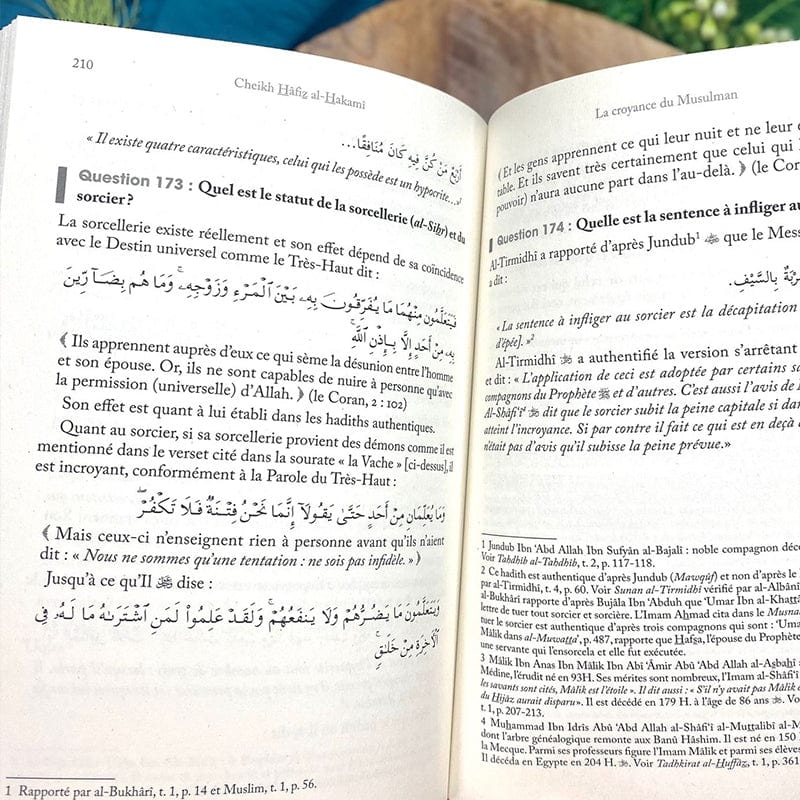 210
Cheikh Hâfiz al-Hakamî
أَرْبَعٌ مَنْ كُنَّ فِيهِ كَانَ مُنَافِقًا...
« Il existe quatre caractéristiques, celui qui les possède est un hypocrite...»¹
Question 173 : Quel est le statut de la sorcellerie (al-Sihr) et du
sorcier?
La sorcellerie existe réellement et son effet dépend de sa coïncidence
avec le Destin universel comme le Très-Haut dit :
فَيَتَعَلَّمُونَ مِنْهُمَا مَا يُفَرِّقُونَ بِهِۦ بَيْنَ الْمَرْءِ وَزَوْجِهِۦ ۚ وَمَا هُم بِضَآرِّينَ
بِهِۦ مِنْ أَحَدٍ إِلَّا بِإِذْنِ اللَّهِ ۚ
﴾ Ils apprennent auprès d'eux ce qui sème la désunion entre l'homme
et son épouse. Or, ils ne sont capables de nuire à personne qu'avec
la permission (universelle) d'Allah. ﴿ (le Coran, 2 : 102)
Son effet est quant à lui établi dans les hadiths authentiques.
Quant au sorcier, si sa sorcellerie provient des démons comme il est
mentionné dans le verset cité dans la sourate « la Vache » [ci-dessus], il
est incroyant, conformément à la Parole du Très-Haut :
وَمَا يُعَلِّمَانِ مِنْ أَحَدٍ حَتَّىٰ يَقُولَآ إِنَّمَا نَحْنُ فِتْنَةٌ فَلَا تَكْفُرْ ۖ
﴾ Mais ceux-ci n'enseignent rien à personne avant qu'ils n'aient
dit : « Nous ne sommes qu'une tentation : ne sois pas infidèle. » ﴿
Jusqu'à ce qu'Il ﷻ dise :
وَيَتَعَلَّمُونَ مَا يَضُرُّهُمْ وَلَا يَنفَعُهُمْ ۚ وَلَقَدْ عَلِمُوا لَمَنِ اشْتَرَىٰهُ مَا لَهُۥ فِي
الْآخِرَةِ مِنْ خَلَٰقٍ ۚ
1 Rapporté par al-Bukhârî, t. 1, p. 14 et Muslim, t. 1, p. 56.
La croyance du Musulman
﴾ Et les gens apprennent ce qui leur nuit et ne leur
table. Et ils savent très certainement que celui qui
pouvoir) n'aura aucune part dans l'au-delà. ﴿ (le Coran
Question 174 : Quelle est la sentence à infliger au
Al-Tirmidhî a rapporté d'après Jundub¹ que le Mess
a dit :
بِالسَّيْفِ.
« La sentence à infliger au sorcier est la décapitation
d'épée]. »²
Al-Tirmidhî a authentifié la version s'arrêtant
et dit : « L'application de ceci est adoptée par certains sa
compagnons du Prophète ﷺ et d'autres. C'est aussi l'avis de
Al-Shâfi'î⁴ dit que le sorcier subit la peine capitale si dan
atteint l'incroyance. Si par contre il fait ce qui est en deçà
n'était pas d'avis qu'il subisse la peine prévue.»
1 Jundub Ibn 'Abd Allah Ibn Sufyân al-Bajalî : noble compagnon décé
Voir Tahdhîb al-Tahdhîb, t. 2, p. 117-118.
2 Ce hadith est authentique d'après Jundub (Mawqûf) et non d'après le
par al-Tirmidhî, t. 4, p. 60. Voir Sunan al-Tirmidhî vérifié par al-Albânî
al-Bukhârî rapporte d'après Bujâla Ibn 'Abduh que 'Umar Ibn al-Khattâ
lettre de tuer tout sorcier et sorcière. L'Imam Ahmad cita dans le Musna
tuer le sorcier est authentique d'après trois compagnons qui sont : 'Uma
Mâlik dans al-Muwatta', p. 487, rapporte que Hafsa, l'épouse du Prophète
une servante qui l'ensorcela et elle fut exécutée.
3 Mâlik Ibn Anas Ibn Mâlik Ibn Abî 'Âmir Abû 'Abd Allah al-Asbahî
Médine, l'érudit né en 93H. Ses mérites sont nombreux, l'Imam al-Shâfi'î
les savants sont cités, Mâlik est l'étoile ». Il dit aussi : « S'il n'y avait pas Mâlik
du Hijâz aurait disparu». Il est décédé en 179 H. à l'âge de 86 ans
t. 1, p. 207-213.
4 Muhammad Ibn Idrîs Abû 'Abd Allah al-Shâfi'î al-Muttalibî al-M
dont l'arbre généalogique remonte aux Banû Hâshim. Il est né en 150
la Mecque. Parmi ses professeurs figure l'Imam Mâlik et parmi ses élève
Il décéda en Egypte en 204 H. Voir Tadhkirat al-Huffâz, t. 1, p. 361